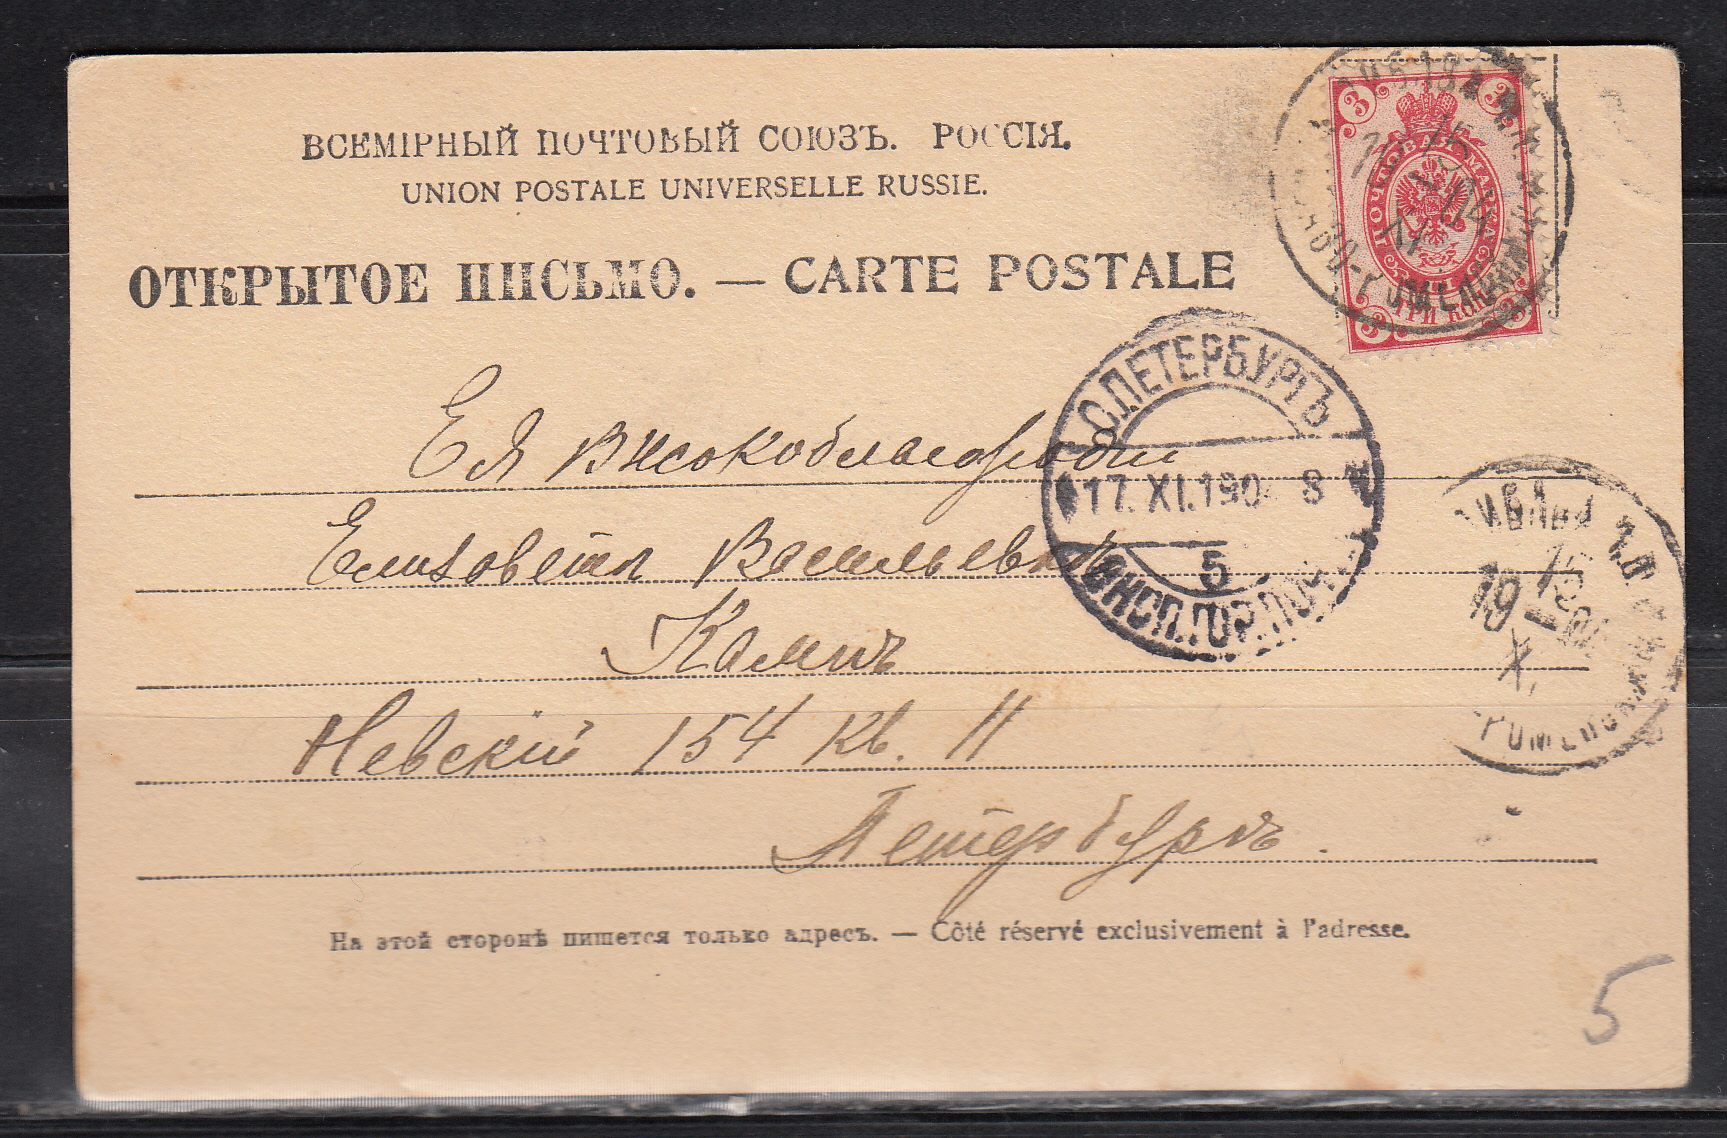 ВСЕМІРНЫЙ ПОЧТОВЫЙ СОЮЗЪ. РОССІЯ.
UNION POSTALE UNIVERSELLE RUSSIE.
ОТКРЫТОЕ ПИСЬМО. — CARTE POSTALE
3 3
ПОЧТОВАЯ МАРКА
ТРИ КОП.
3 3
С.ПЕТЕРБУРГЪ
17. XI. 190 8
5
Ея Высокоблагородiи
Елизовета Васильевна
Каминъ
Невскій 154 кв. 11
Петербургъ.
19
X.
На этой сторонѣ пишется только адресъ. — Côté réservé exclusivement à l'adresse.
5